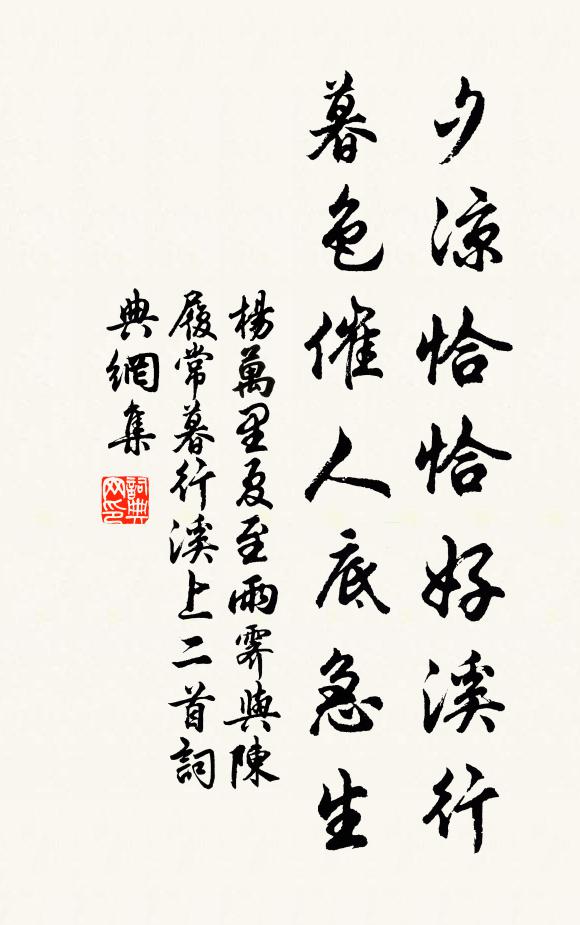 夕涼恰恰好溪行
暮色催人底急生
楊萬里夏至雨霽與陳
履常暮行溪上二首詞
典網集
詞典
网印